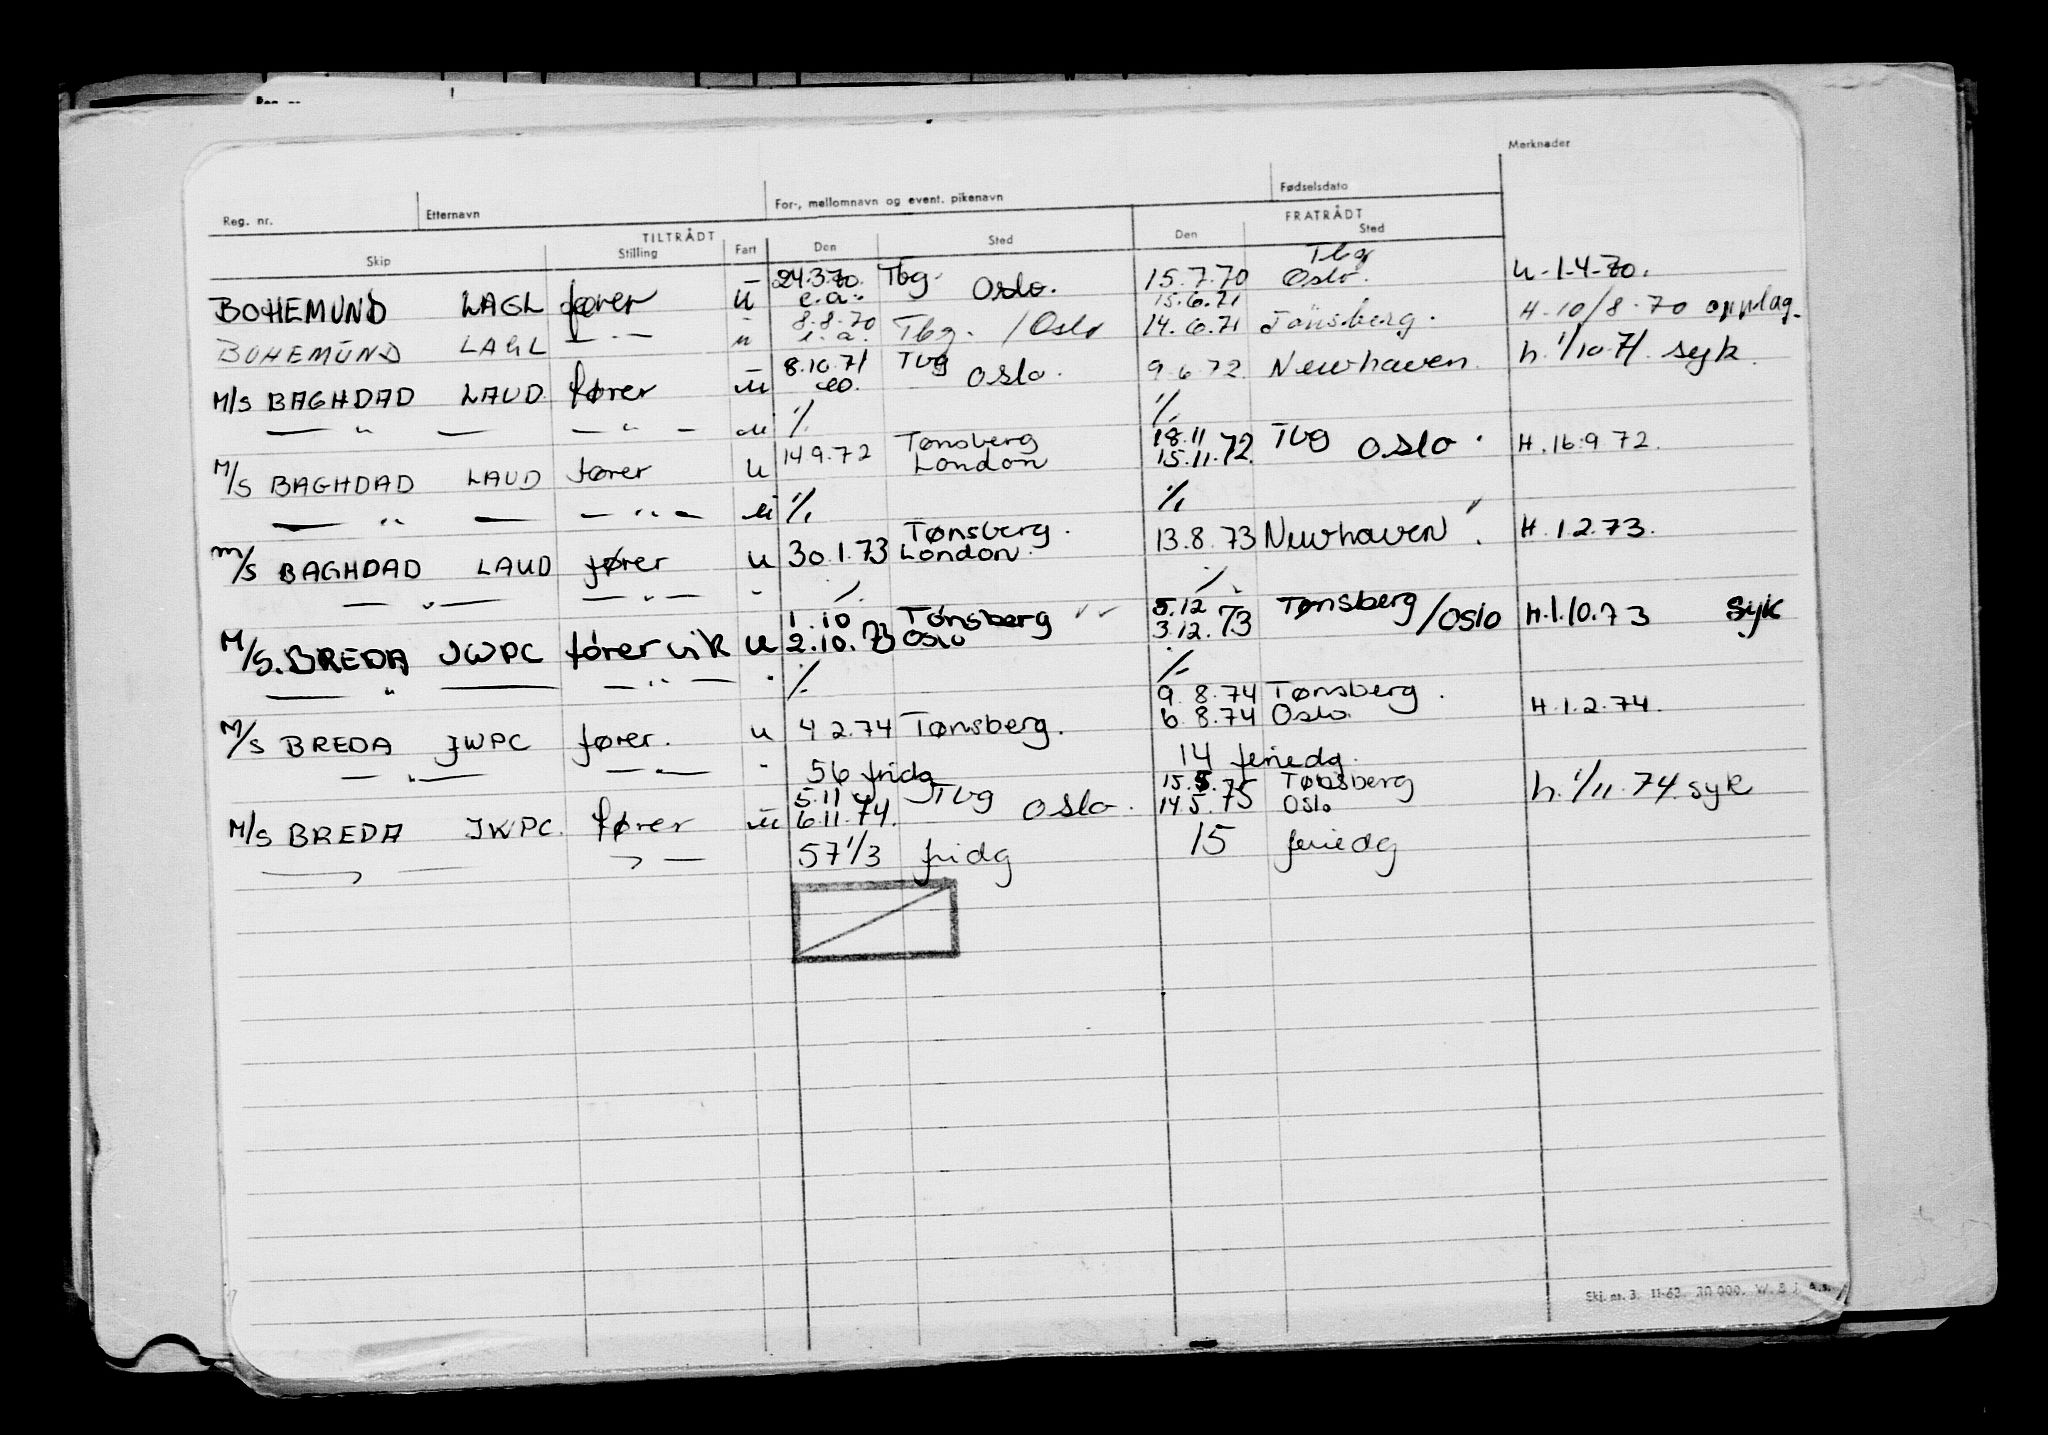 Merknader
Reg. nr. Etternavn For-, mellomnavn og event. pikenavn Fødselsdato
TILTRÅDT FRATRÅDT
Skip Stilling Fart Den Sted Den Sted
BOHEMUND LAGL fører u 24.3.70. e.a. Tbg. Oslo. 15.7.70 Tbg Oslo. u-1-4-70.
BOHEMUND LAGL — " — u 8.8.70 e.a. Tbg. / Oslo 15.6.71 14.6.71 Tønsberg. H. 10/8.70 opplag.
M/S BAGHDAD LAUD fører u 8.10.71 eo. Tbg Oslo. 9.6.72 Newhaven. h. 1/10.71. syk.
— " — — " — u 1/1 1/1
M/S BAGHDAD LAUD fører u 14 9.72 Tønsberg London 18.11 15.11.72. Tbg Oslo. H.16.9 72.
— " — — " — u 1/1 1/1
M/S BAGHDAD LAUD fører u 30.1.73 Tønsberg. London. 13.8.73 Newhaven. H.1.2.73.
— " — — " — "
M/S. BREDA JWPC fører vik u 1.10 2.10.73 Tønsberg Oslo 5.12 3.12.73 Tønsberg /Oslo H.1.10.73 syk
— " — — " — "
M/S BREDA JWPC fører. u 4 2.74 Tønsberg. 9.8.74 6.8.74 Tønsberg. Oslo. H.1.2.74.
— " — — " — " 56 fridg 14 feriedg.
M/S BREDA JWPC. fører u 5.11 6.11.74. Tbg Oslo. 15.5.75 14.5.75 Tønsberg Oslo h. 1/11.74. syk
57 1/3 fridg 15 feriedg
Skj. nr. 3. 11-62. 20 000.